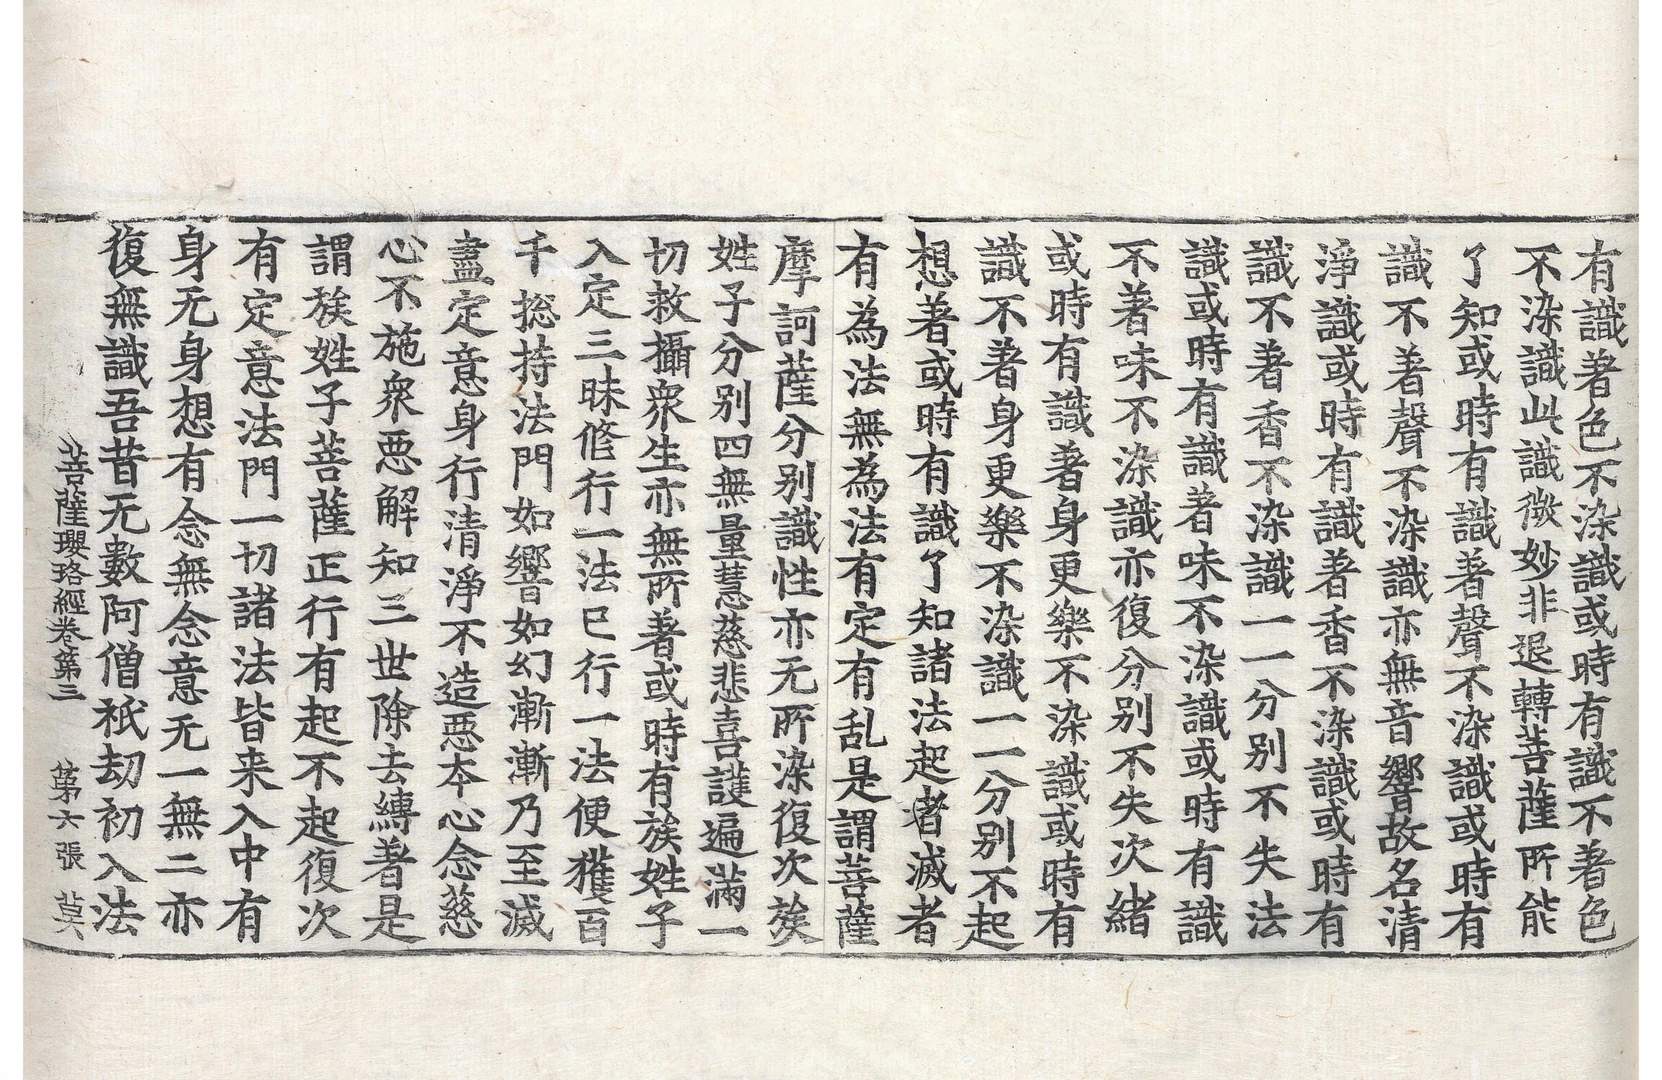 有識著色不染識或時有識不著色
不染識此識微妙非退轉菩薩所能
了知或時有識著聲不染識或時有
識不著聲不染識亦無音響故名清
淨識或時有識著香不染識或時有
識不著香不染識一一分別不失法
識或時有識著味不染識或時有識
不著味不染識亦復分別不失次緒
或時有識著身更樂不染識或時有
識不著身更樂不染識一一分別不起
想著或時有識了知諸法起者滅者
有為法無為法有定有乱是謂菩薩
摩訶薩分別識性亦无所染復次族
姓子分別四無量慧慈悲喜護遍滿一
切救攝衆生亦無所著或時有族姓子
入定三昧修行一法已行一法便獲百
千揔持法門如響如幻漸漸乃至滅
盡定意身行清淨不造惡本心念慈
心不施衆惡解知三世除去縛著是
謂族姓子菩薩正行有起不起復次
有定意法門一切諸法皆来入中有
身无身想有念無念意无一無二亦
復無識吾昔无數阿僧祇劫初入法
菩薩瓔珞經卷第三 第六張 莫